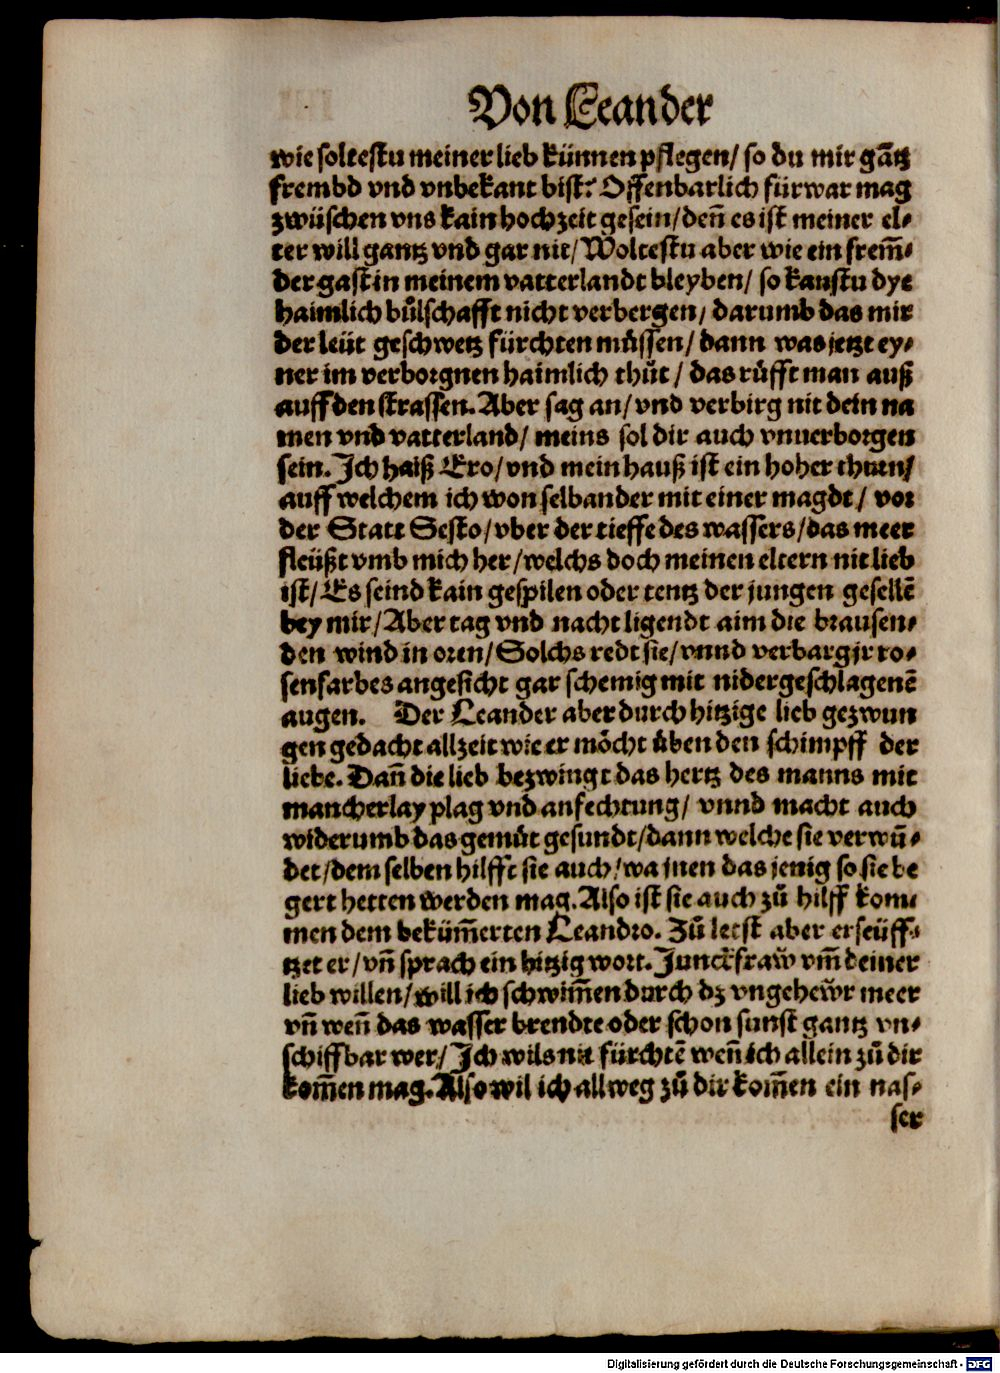 Von Leander
wie soltestu meiner lieb künnen pflegen/ so du mir gātz
frembd vnd vnbekant bist? Offenbarlich fürwar mag
zwüschen vns kain hochzeit gesein/ deñ es ist meiner el-
ter will gantz vnd gar nit/ Woltestu aber wie ein frem̄-
der gast in meinem vatterlandt bleyben/ so kanstu dye
haimlich bůlschafft nicht verbergen/ darumb das mir
der leüt geschwetz fürchten müssen/ dann was jetzt ey-
ner im verborgnen haimlich thůt/ das rüfft man auß
auff den strassen. Aber sag an/ vnd verbirg nit dein na
men vnd vatterland/ meins sol dir auch vnuerborgen
sein. Ich haiß Ero/ vnd mein hauß ist ein hoher thurn/
auff welchem ich won selbander mit einer magdt/ vor
der Statt Sesto/ vber der tieffe des wassers/ das meer
fleüßt vmb mich her/ welchs doch meinen eltern nit lieb
ist/ Es seind kain gespilen oder tentz der jungen gesellē
bey mir/ Aber tag vnd nacht ligendt aim die brausen-
den wind in oren/ Solchs redt sie/ vnnd verbarg jr ro-
senfarbes angesicht gar schemig mit nidergeschlagenē
augen. Der Leander aber durch hitzige lieb gezwun
gen gedacht allzeit wie er möcht üben den schimpff der
liebe. Dañ die lieb bezwingt das hertz des manns mit
mancherlay plag vnd anfechtung/ vnnd macht auch
widerumb das gemüt gesundt/ dann welche sie verwū-
det/ dem selben hilfft sie auch/ wa jnen das jenig so sie be
gert hetten werden mag. Also ist sie auch zů hilff kom-
men dem beküm̄erten Leandro. Zů letst aber erseüff-
tzet er/ vñ sprach ein hitzig wort. Junckfraw vm̄ deiner
lieb willen/ will ich schwim̄en durch dz vngehewr meer
vñ weñ das wasser brendte oder schon sunst gantz vn-
schiffbar wer/ Ich wils nit fürchtē weñ ich allein zů dir
kom̄en mag. Also wil ich allweg zů dir kom̄en ein nas-
ser
Digitalisierung gefördert durch die Deutsche Forschungsgemeinschaft - DFG